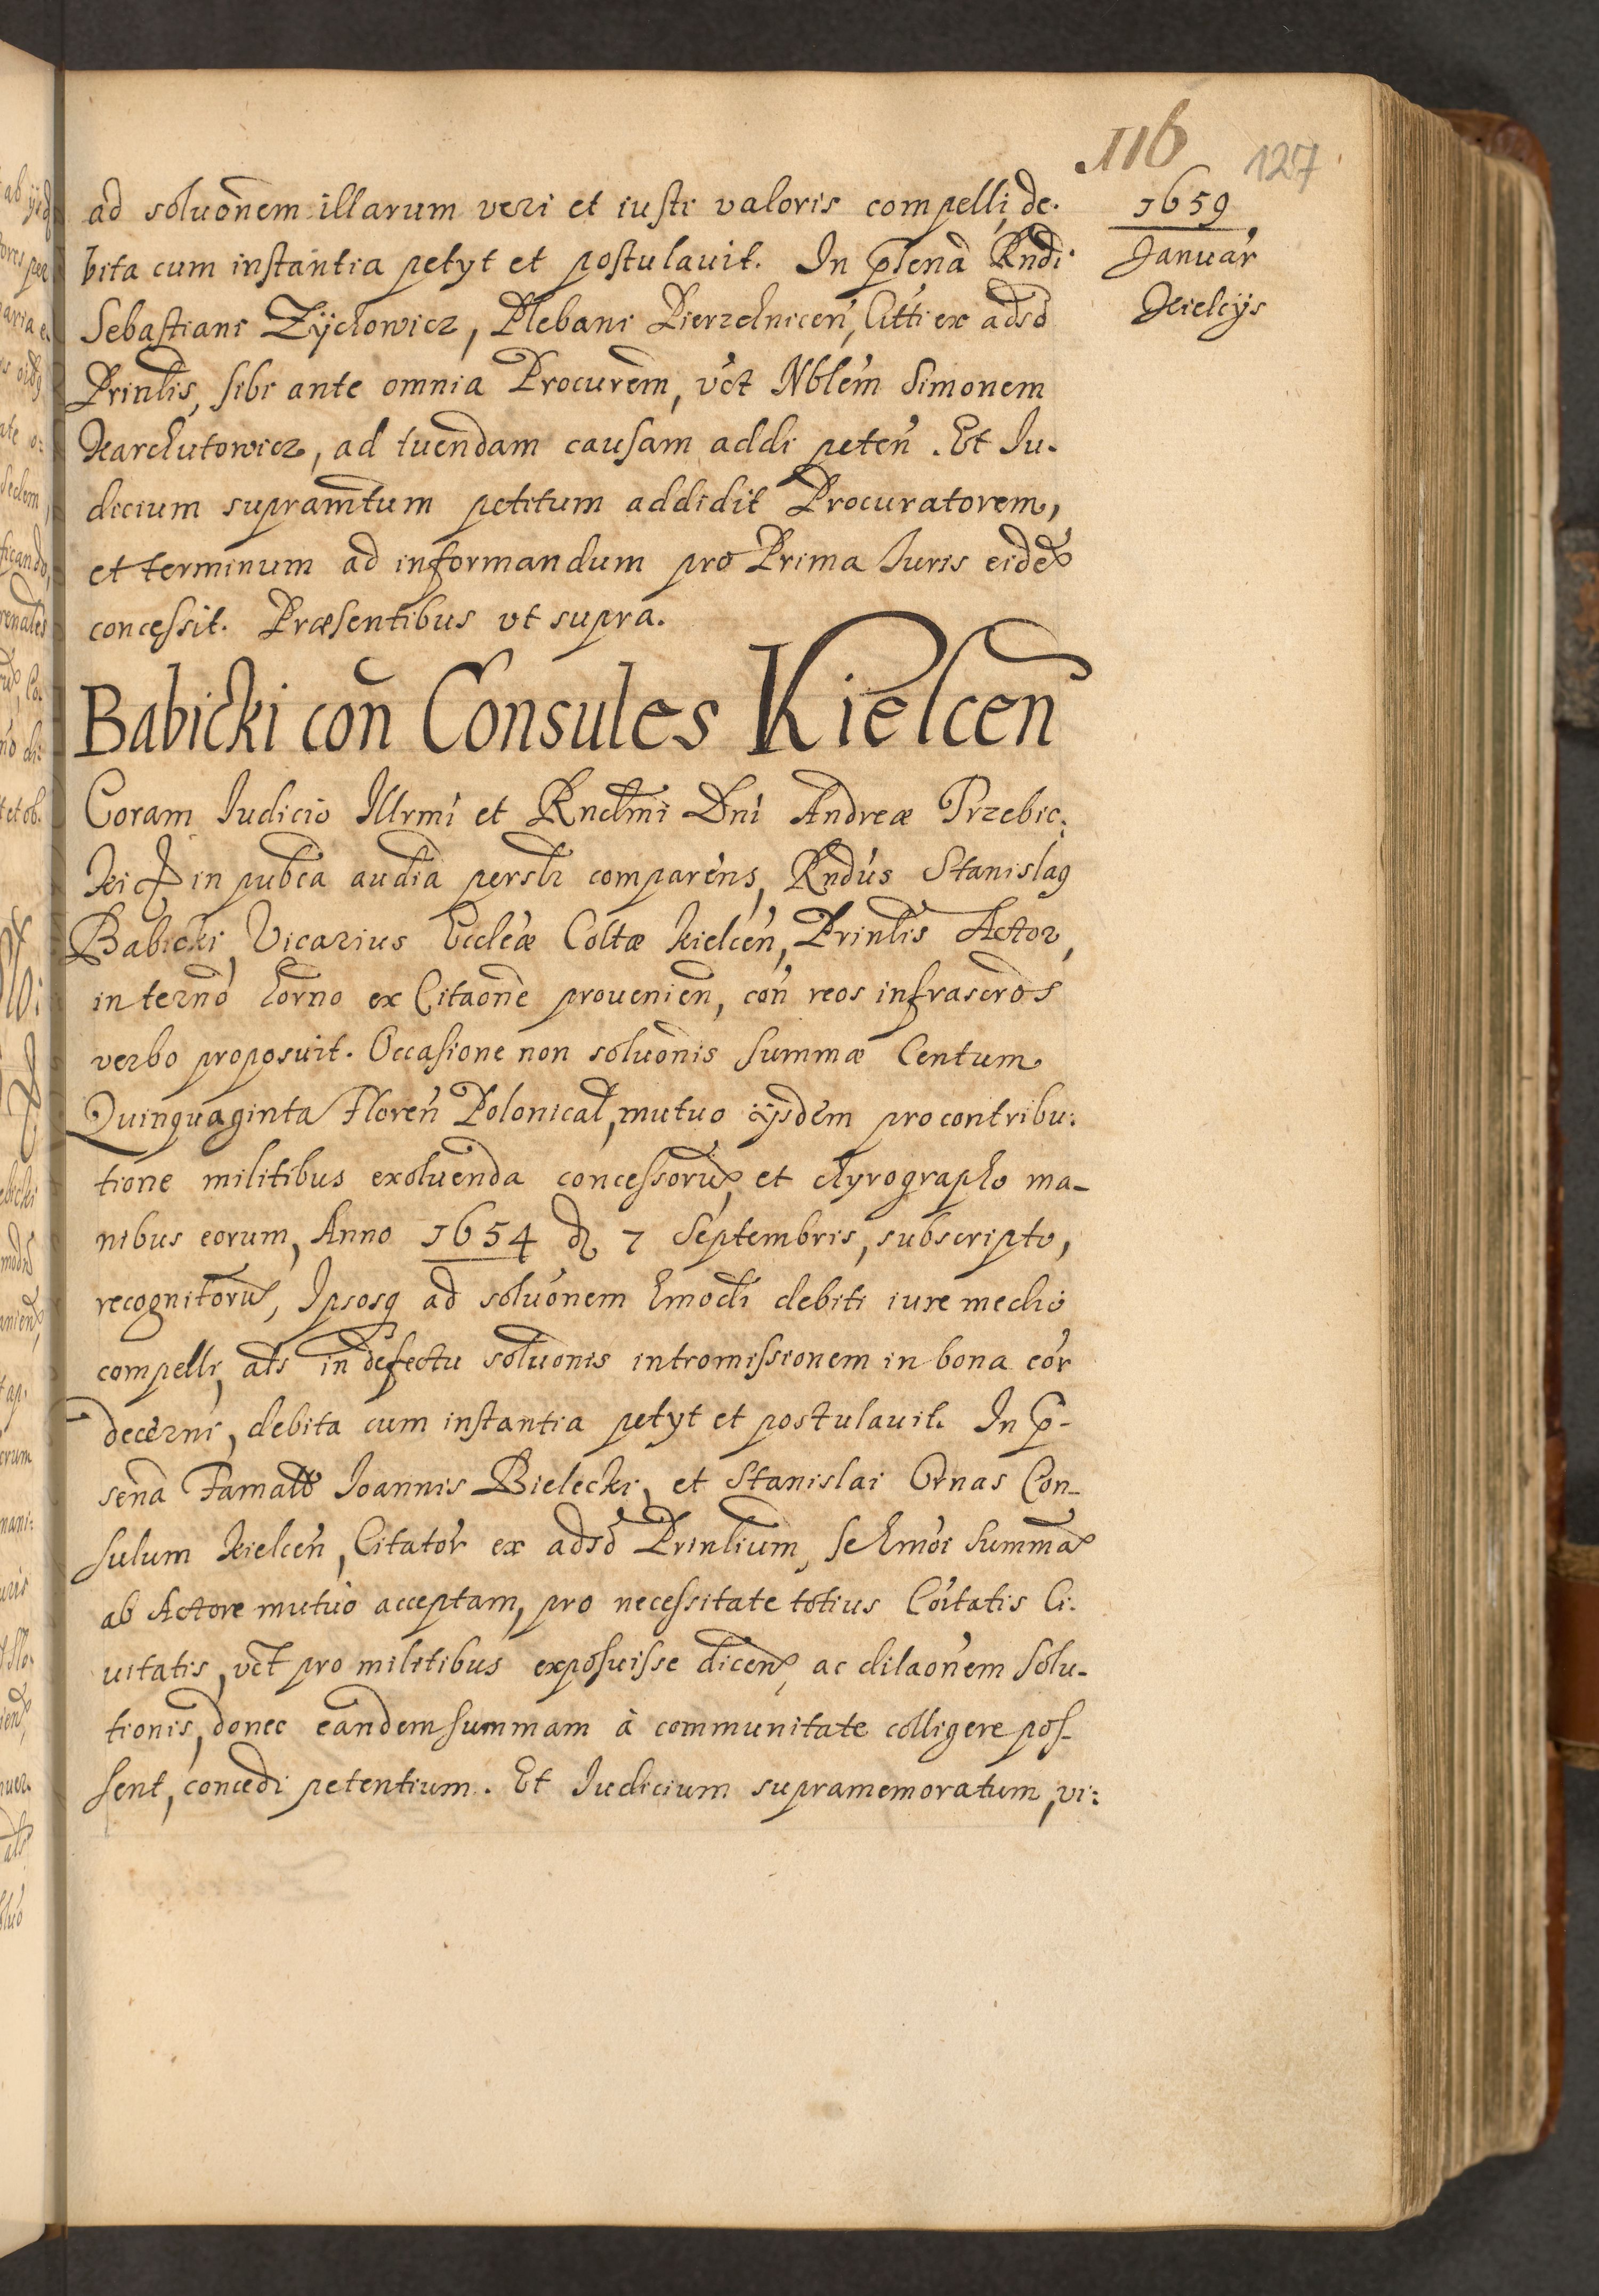 116 127
1659
Januar̃
Kielcijs
ad soluōnem illarum veri et iusti valoris compelli, de-
bita cum instantia petyt et postulauit. In p̃senã Rndi
Sebastiani Zÿchowicz, Plebani Pierzchnicen̄, Citti ex adsõ
Prinlis, sibi ante omnia Procurem̃, vct Nblem̃ Simonem
Karchutowicz, ad tuendam causam addi peten̄. Et Iu-
dicium supramtum petitum addidit Procuratorem,
et terminum ad informandum pro Prima Iuris eidẽ
concessit. Præsentibus vt supra.
Babicki con̄ Consules Kielcen̄
Coram Iudicio Illrmi et Rndmi Dni Andreæ Przebic:
ki in publca audia perslr comparens, Rndus Stanislaus
Babicki, Vicarius Eccleæ Coltæ Kielcen̄, Prinlis Actor,
in termo horno ex Citaone prouenien̄, con̄ reos infrascros
verbo proposuit. Occasione non soluonis summæ Centum
Quinquaginta Floren̄ Polonical, mutuo ijsdem pro contribu:
tione militibus exoluenda concessorũ, et chyrographo ma-
nibus eorum, Anno 1654 d 7 Septembris, subscripto,
recognitorũ, Ipsosq ad soluonem hmodi debiti iure medio
compelli, als in defectu soluonis intromissionem in bona eor̃
decerni, debita cum instantia petyt et postulauit. In p̃-
senã Famato Ioannis Bielecki, et Stanislai Ornas Con-
sulum Kielcen̄, Citator̃ ex adsõ Prinlium, se hmoi summã
ab Actore mutuo acceptam, pro necessitate totius Coitatis Ci-
uitatis, vct pro militibus exposuisse dicen̄, ac dilaonem solu-
tionis, donec eandem summam à communitate colligere pos-
sent, concedi petentium. Et Iudicium supramemoratum, vi: